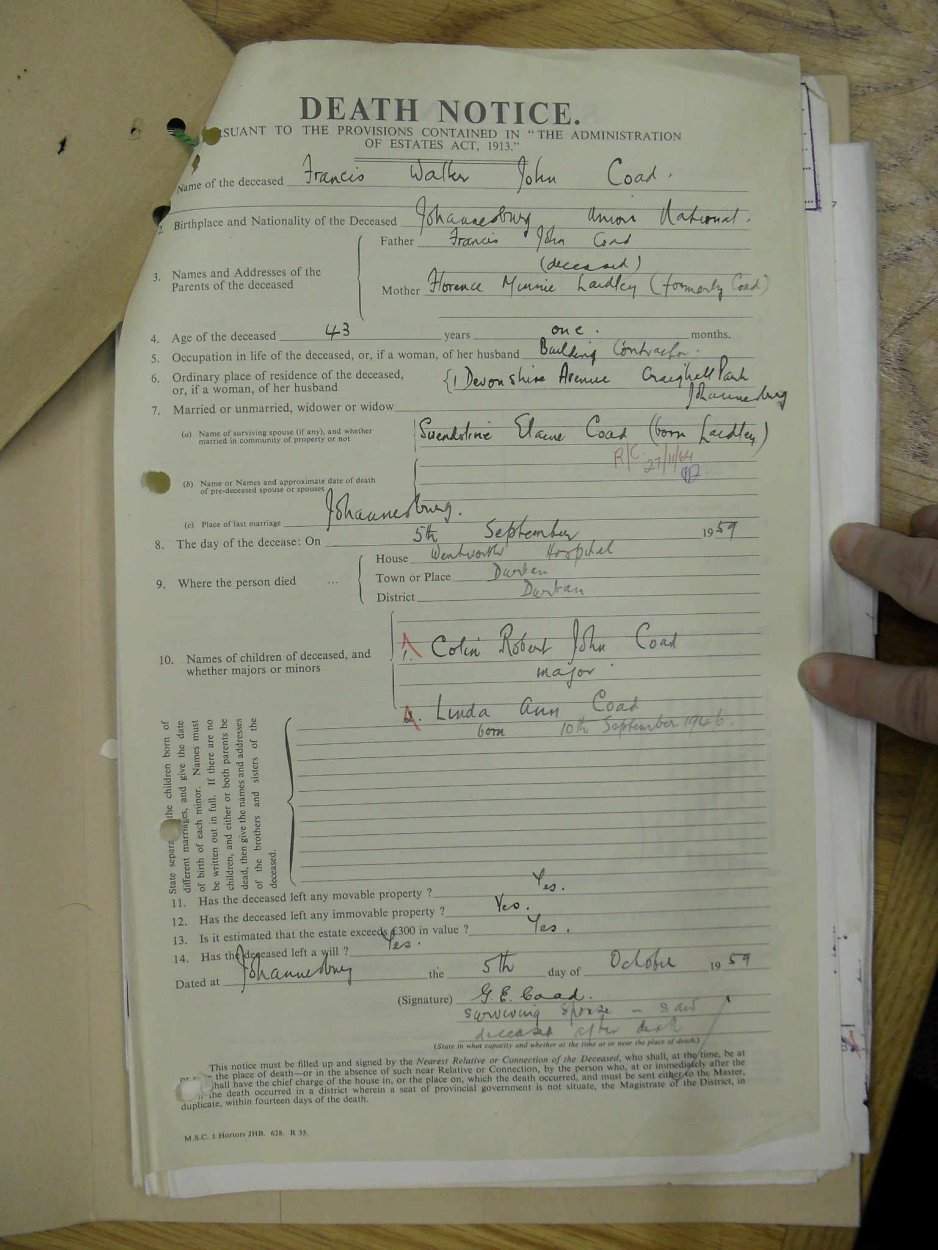 DEATH NOTICE.
SUANT TO THE PROVISIONS CONTAINED IN "THE ADMINISTRATION
OF ESTATES ACT, 1913."
Name of the deceased Francis Walter John Coad.
2. Birthplace and Nationality of the Deceased Johannesburg Union National.
3. Names and Addresses of the Parents of the deceased
Father Francis John Coad
(deceased)
Mother Florence Minnie Laidley (formerly Coad)
4. Age of the deceased 43 years one. months.
5. Occupation in life of the deceased, or, if a woman, of her husband Building Contractor.
6. Ordinary place of residence of the deceased, {1 Devonshire Avenue Craighall Park
or, if a woman, of her husband Johannesburg
7. Married or unmarried, widower or widow
(a) Name of surviving spouse (if any), and whether married in community of property or not Gwendoline Elaine Coad (born Laidley)
R/C 27/11/64
(b) Name or Names and approximate date of death of pre-deceased spouse or spouses
(c) Place of last marriage Johannesburg.
8. The day of the decease: On 5th September 1959
9. Where the person died ...
House Wentworth Hospital
Town or Place Durban
District Durban
10. Names of children of deceased, and whether majors or minors
1. Colin Robert John Coad
major
2. Linda Ann Coad
born 10th September 1946.
State separa the children born of
different marriages, and give the date
of birth of each minor. Names must
be written out in full. If there are no
children, and either or both parents be
dead, then give the names and addresses
of the brothers and sisters of the
deceased.
11. Has the deceased left any movable property? Yes.
12. Has the deceased left any immovable property? Yes.
13. Is it estimated that the estate exceeds £300 in value? Yes.
14. Has the deceased left a will? Yes.
Dated at Johannesburg the 5th day of October 1959
(Signature) G.E. Coad.
Surviving Spouse – saw
deceased after death
(State in what capacity and whether at the time at or near the place of death.)
This notice must be filled up and signed by the Nearest Relative or Connection of the Deceased, who shall, at the time, be at
the place of death—or in the absence of such near Relative or Connection, by the person who, at or immediately after the
hall have the chief charge of the house in, or the place on, which the death occurred, and must be sent either to the Master,
the death occurred in a district wherein a seat of provincial government is not situate, the Magistrate of the District, in
duplicate, within fourteen days of the death.
M.S.C. 1 Hortors JHB. 628. R 35.